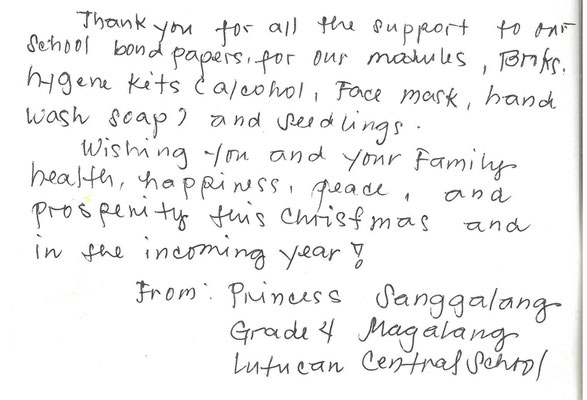 Thank you for all the support to our
school bond papers, for our modules, Books,
hygene kits (alcohol, Face mask, hand
wash soap) and seedlings.
Wishing you and your Family
health, happiness, peace, and
prosperity this Christmas and
in the incoming year!
From: Princess Sanggalang
Grade 4 Magalang
Lutucan Central School